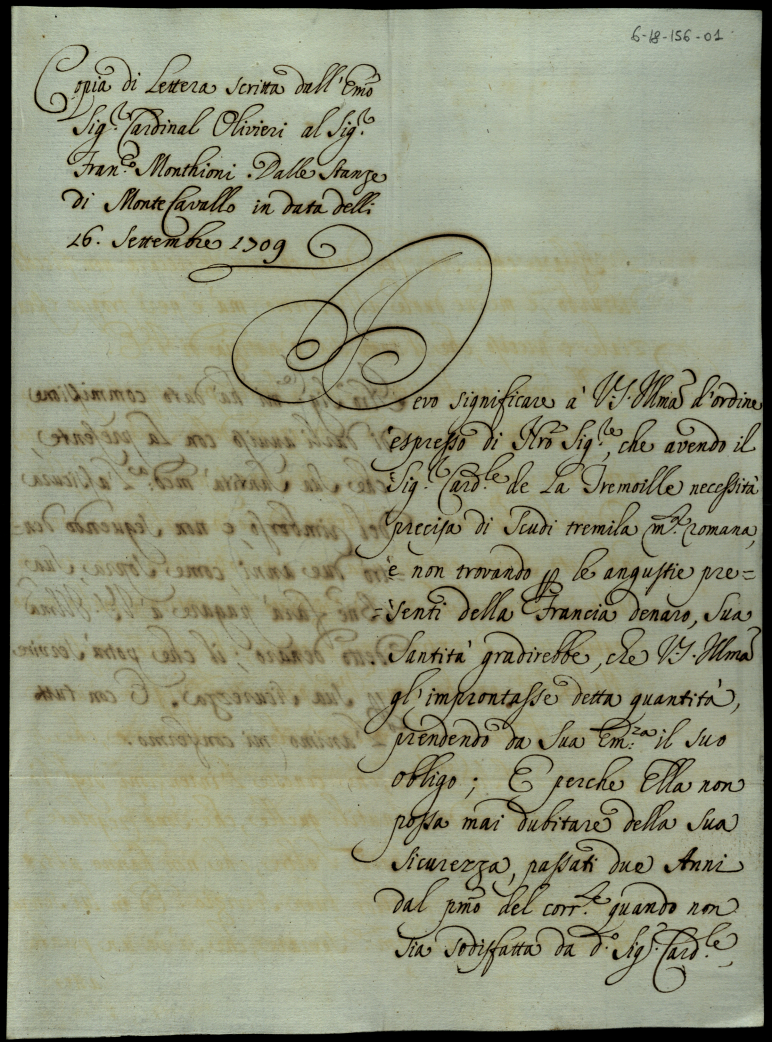 6-18-156-01
Copia di Lettera scritta dall' Emo
Sig.r Cardinal Olivieri al Sig.r
Fran.co Monthioni. Dalle Stanze
di Monte Cavallo in data delli
16. Settembre 1709
Devo significare à V. S. Illma d'ordine
espresso di Nro Sig.re, che avendo il
Sig.r Card.le de La Tremoille necessità
precisa di Scudi tremila m.ta romana,
è non trovando p le angustie pre=
=senti della Francia denaro, Sua
Santità gradirebbe, che V. S. Illma
gl' improntasse detta quantità,
prendendo da Sua Em.za il suo
obligo; E perche Ella non
possa mai dubitare della Sua
Sicurezza, passati due Anni
dal pmo del corr.te quando non
sia sodisfatta da d.o Sig.r Card.le